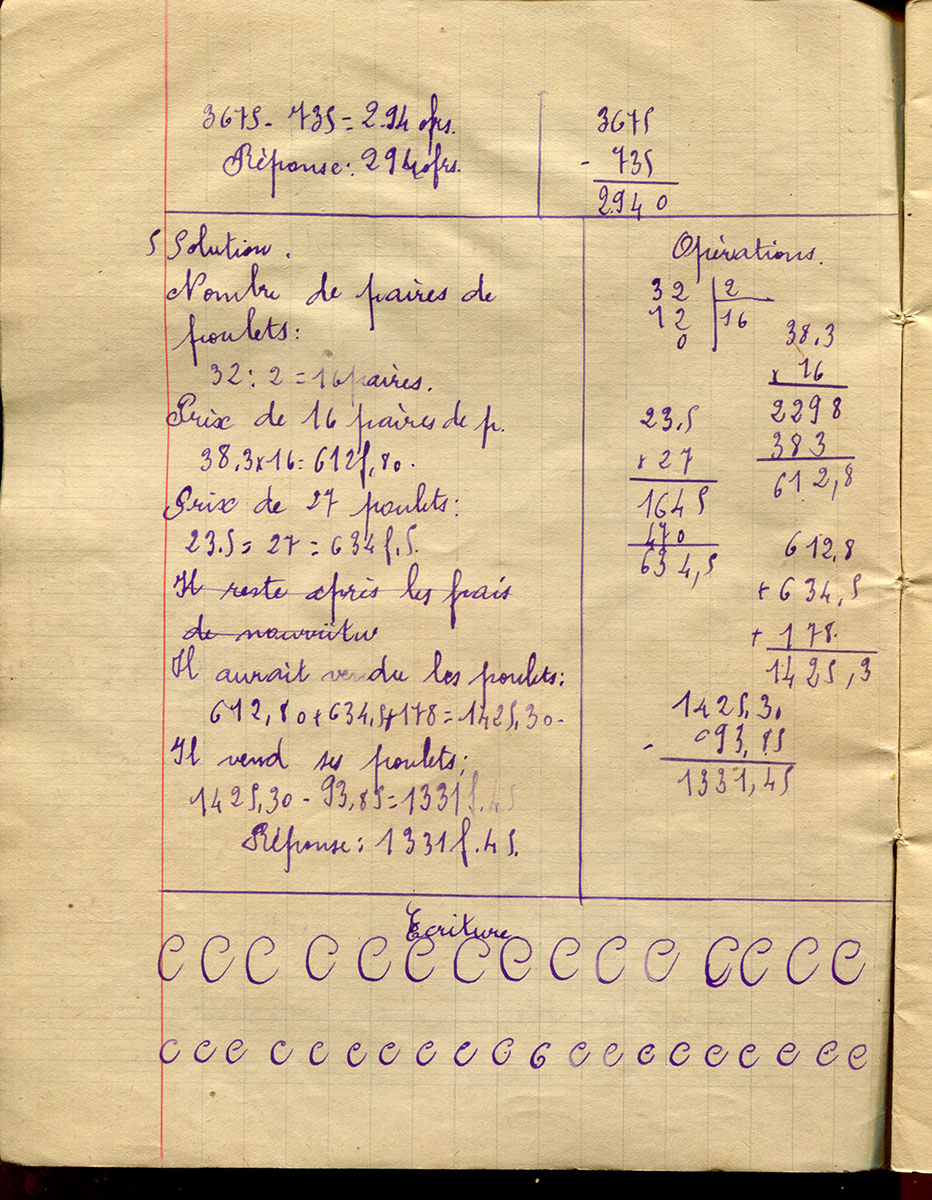 3675 - 735 = 2940frs.
Réponse: 2940frs.
3675
- 735
2940
5 Solution.
Nombre de paires de
poulets:
32 : 2 = 16 paires.
Prix de 16 paires de p.
38,3 x 16 = 612f,80.
Prix de 27 poulets:
23.5 = 27 = 634f.5.
Il reste après les frais
de nourritur
Il aurait vendu les poulets:
612,80 + 634,5 + 178 = 1425,30-
Il vend ses poulets;
1425,30 - 93,85 = 1331f.45
Réponse: 1331f.45.
Opérations.
32 2
12 16
0
38,3
x 16
2298
383
612,8
23,5
x 27
1645
470
634,5
612,8
+ 634,5
+ 178.
1425,3
1425,30
- 093,85
1331,45
Ecriture
C C C C C C C C C C C C C C C
c c c c c c c c c c c c c c c c c c c